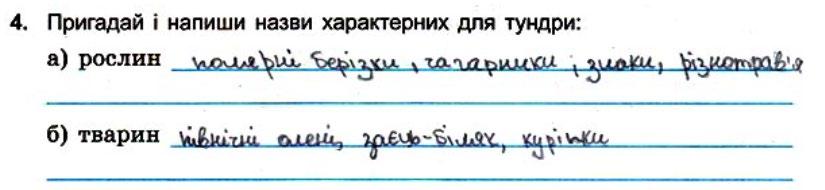 4. Пригадай і напиши назви характерних для тундри:
а) рослин полярні берізки, чагарники, злаки, різнотрав'я
б) тварин північні олені, заєць-біляк, куріпки